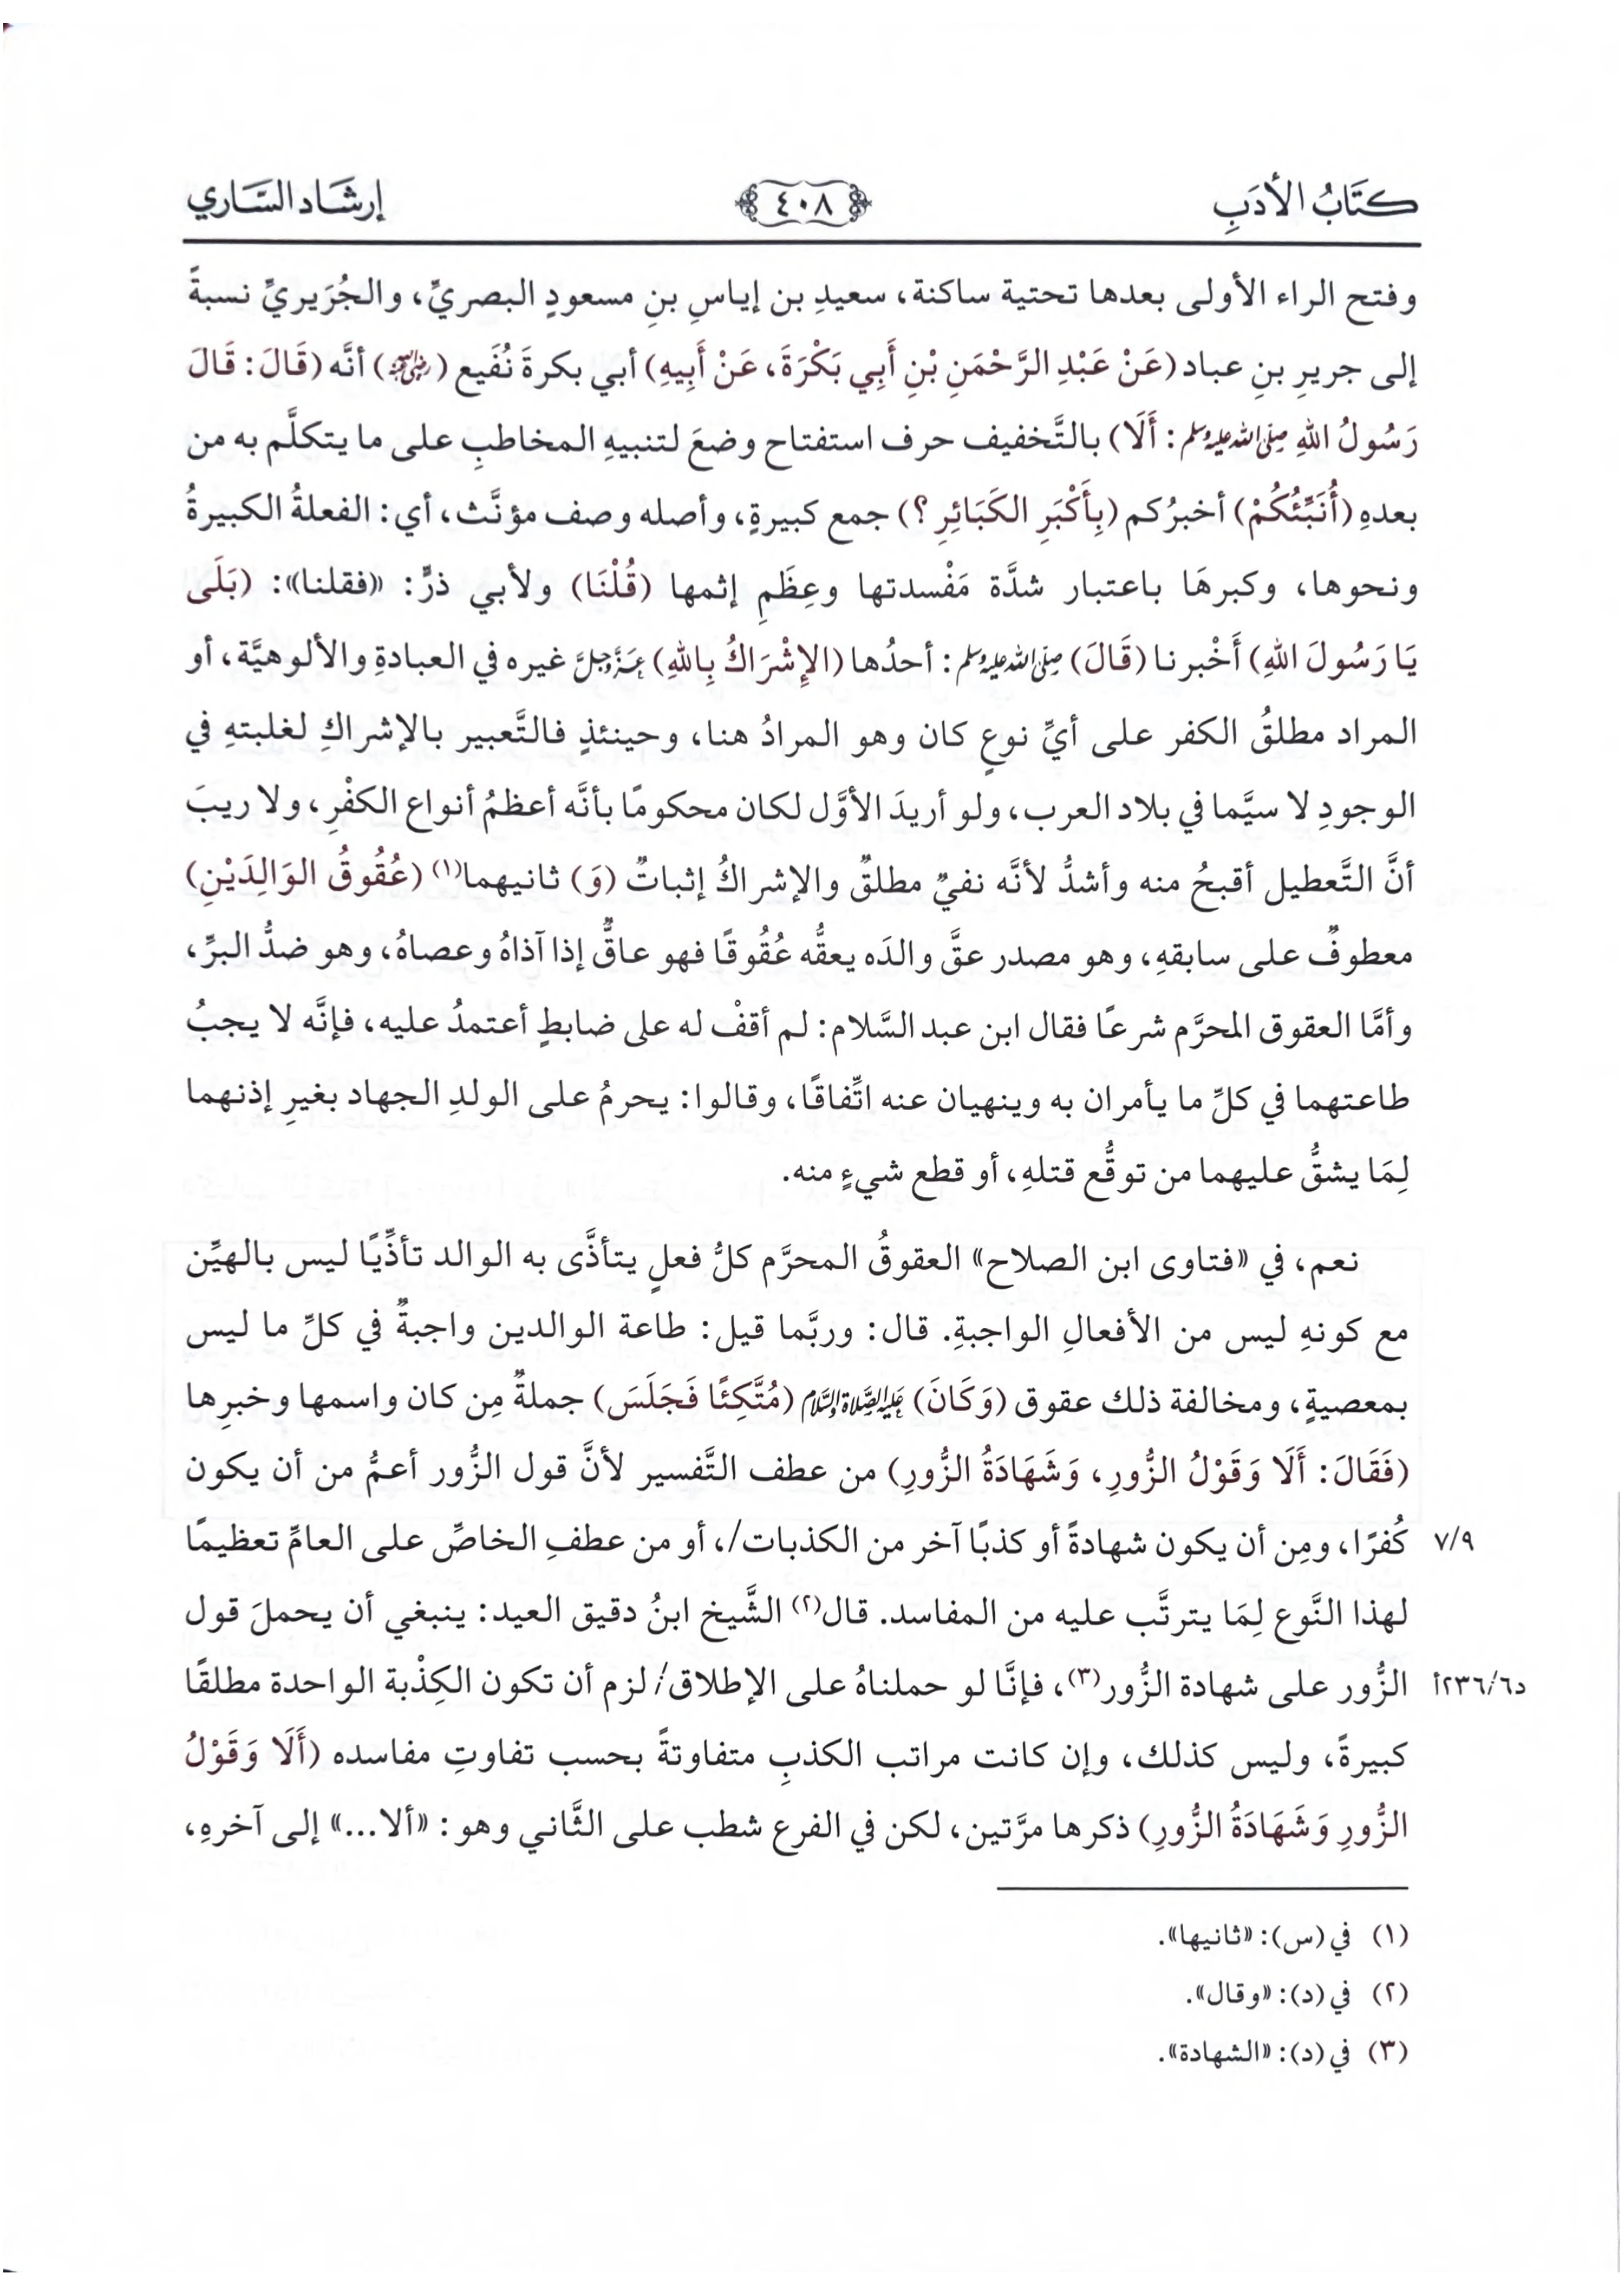 كتَابُ الأدَبِ
٤٠٨
إرشَاد السَّاري
وفتح الراء الأولى بعدها تحتية ساكنة، سعيدِ بن إياسِ بنِ مسعودٍ البصريِّ، والجُرَيريِّ نسبةً
إلى جريرِ بنِ عباد (عَنْ عَبْدِ الرَّحْمَنِ بْنِ أَبِي بَكْرَةَ، عَنْ أَبِيهِ) أبي بكرةَ نُفَيع (رضي الله عنه) أنَّه (قَالَ: قَالَ
رَسُولُ اللهِ صلى الله عليه وسلم: أَلَا) بالتَّخفيف حرف استفتاح وضعَ لتنبيهِ المخاطبِ على ما يتكلَّم به من
بعدهِ (أُنَبِّئُكُمْ) أخبرُكم (بِأَكْبَرِ الكَبَائِرِ ؟) جمع كبيرةٍ، وأصله وصف مؤنَّث، أي: الفعلةُ الكبيرةُ
ونحوها، وكبرهَا باعتبار شدَّة مَفْسدتها وعِظَمِ إثمها (قُلْنَا) ولأبي ذرٍّ: «فقلنا»: (بَلَى
يَا رَسُولَ اللهِ) أَخْبرنا (قَالَ) صلى الله عليه وسلم: أحدُها (الإِشْرَاكُ بِاللهِ) عَزَّ وَجَلَّ غيره في العبادةِ والألوهيَّة، أو
المراد مطلقُ الكفر على أيِّ نوعٍ كان وهو المرادُ هنا، وحينئذٍ فالتَّعبير بالإشراكِ لغلبتهِ في
الوجودِ لا سيَّما في بلاد العرب، ولو أريدَ الأوَّل لكان محكومًا بأنَّه أعظمُ أنواع الكفْرِ، ولا ريبَ
أنَّ التَّعطيل أقبحُ منه وأشدُّ لأنَّه نفيٌ مطلقٌ والإشراكُ إثباتٌ (وَ) ثانيهما(١) (عُقُوقُ الوَالِدَيْنِ)
معطوفٌ على سابقهِ، وهو مصدر عقَّ والدَه يعقُّه عُقُوقًا فهو عاقٌّ إذا آذاهُ وعصاهُ، وهو ضدُّ البرِّ،
وأمَّا العقوق المحرَّم شرعًا فقال ابن عبد السَّلام: لم أقفْ له على ضابطٍ أعتمدُ عليه، فإنَّه لا يجبُ
طاعتهما في كلِّ ما يأمران به وينهيان عنه اتِّفاقًا، وقالوا: يحرمُ على الولدِ الجهاد بغيرِ إذنهما
لِمَا يشقُّ عليهما من توقُّع قتلهِ، أو قطع شيءٍ منه.
نعم، في «فتاوى ابن الصلاح» العقوقُ المحرَّم كلُّ فعلٍ يتأذَّى به الوالد تأذِّيًا ليس بالهيِّن
مع كونهِ ليس من الأفعالِ الواجبةِ. قال: وربَّما قيل: طاعة الوالدين واجبةٌ في كلِّ ما ليس
بمعصيةٍ، ومخالفة ذلك عقوق (وَكَانَ) عليه الصلاة والسلام (مُتَّكِئًا فَجَلَسَ) جملةٌ مِن كان واسمها وخبرِها
(فَقَالَ: أَلَا وَقَوْلُ الزُّورِ، وَشَهَادَةُ الزُّورِ) من عطف التَّفسير لأنَّ قول الزُّور أعمُّ من أن يكون
كُفرًا، ومِن أن يكون شهادةً أو كذبًا آخر من الكذبات/، أو من عطفِ الخاصِّ على العامِّ تعظيمًا
٧/٩
لهذا النَّوع لِمَا يترتَّب عليه من المفاسد. قال(٢) الشَّيخ ابنُ دقيق العيد: ينبغي أن يحملَ قول
الزُّور على شهادة الزُّور(٣)، فإنَّا لو حملناهُ على الإطلاق/ لزم أن تكون الكِذْبة الواحدة مطلقًا
د٢٣٦/٦أ
كبيرةً، وليس كذلك، وإن كانت مراتب الكذبِ متفاوتةً بحسب تفاوتِ مفاسده (أَلَا وَقَوْلُ
الزُّورِ وَشَهَادَةُ الزُّورِ) ذكرها مرَّتين، لكن في الفرع شطب على الثَّاني وهو: «ألا...» إلى آخرهِ،
(١) في (س): «ثانيها».
(٢) في (د): «وقال».
(٣) في (د): «الشهادة».